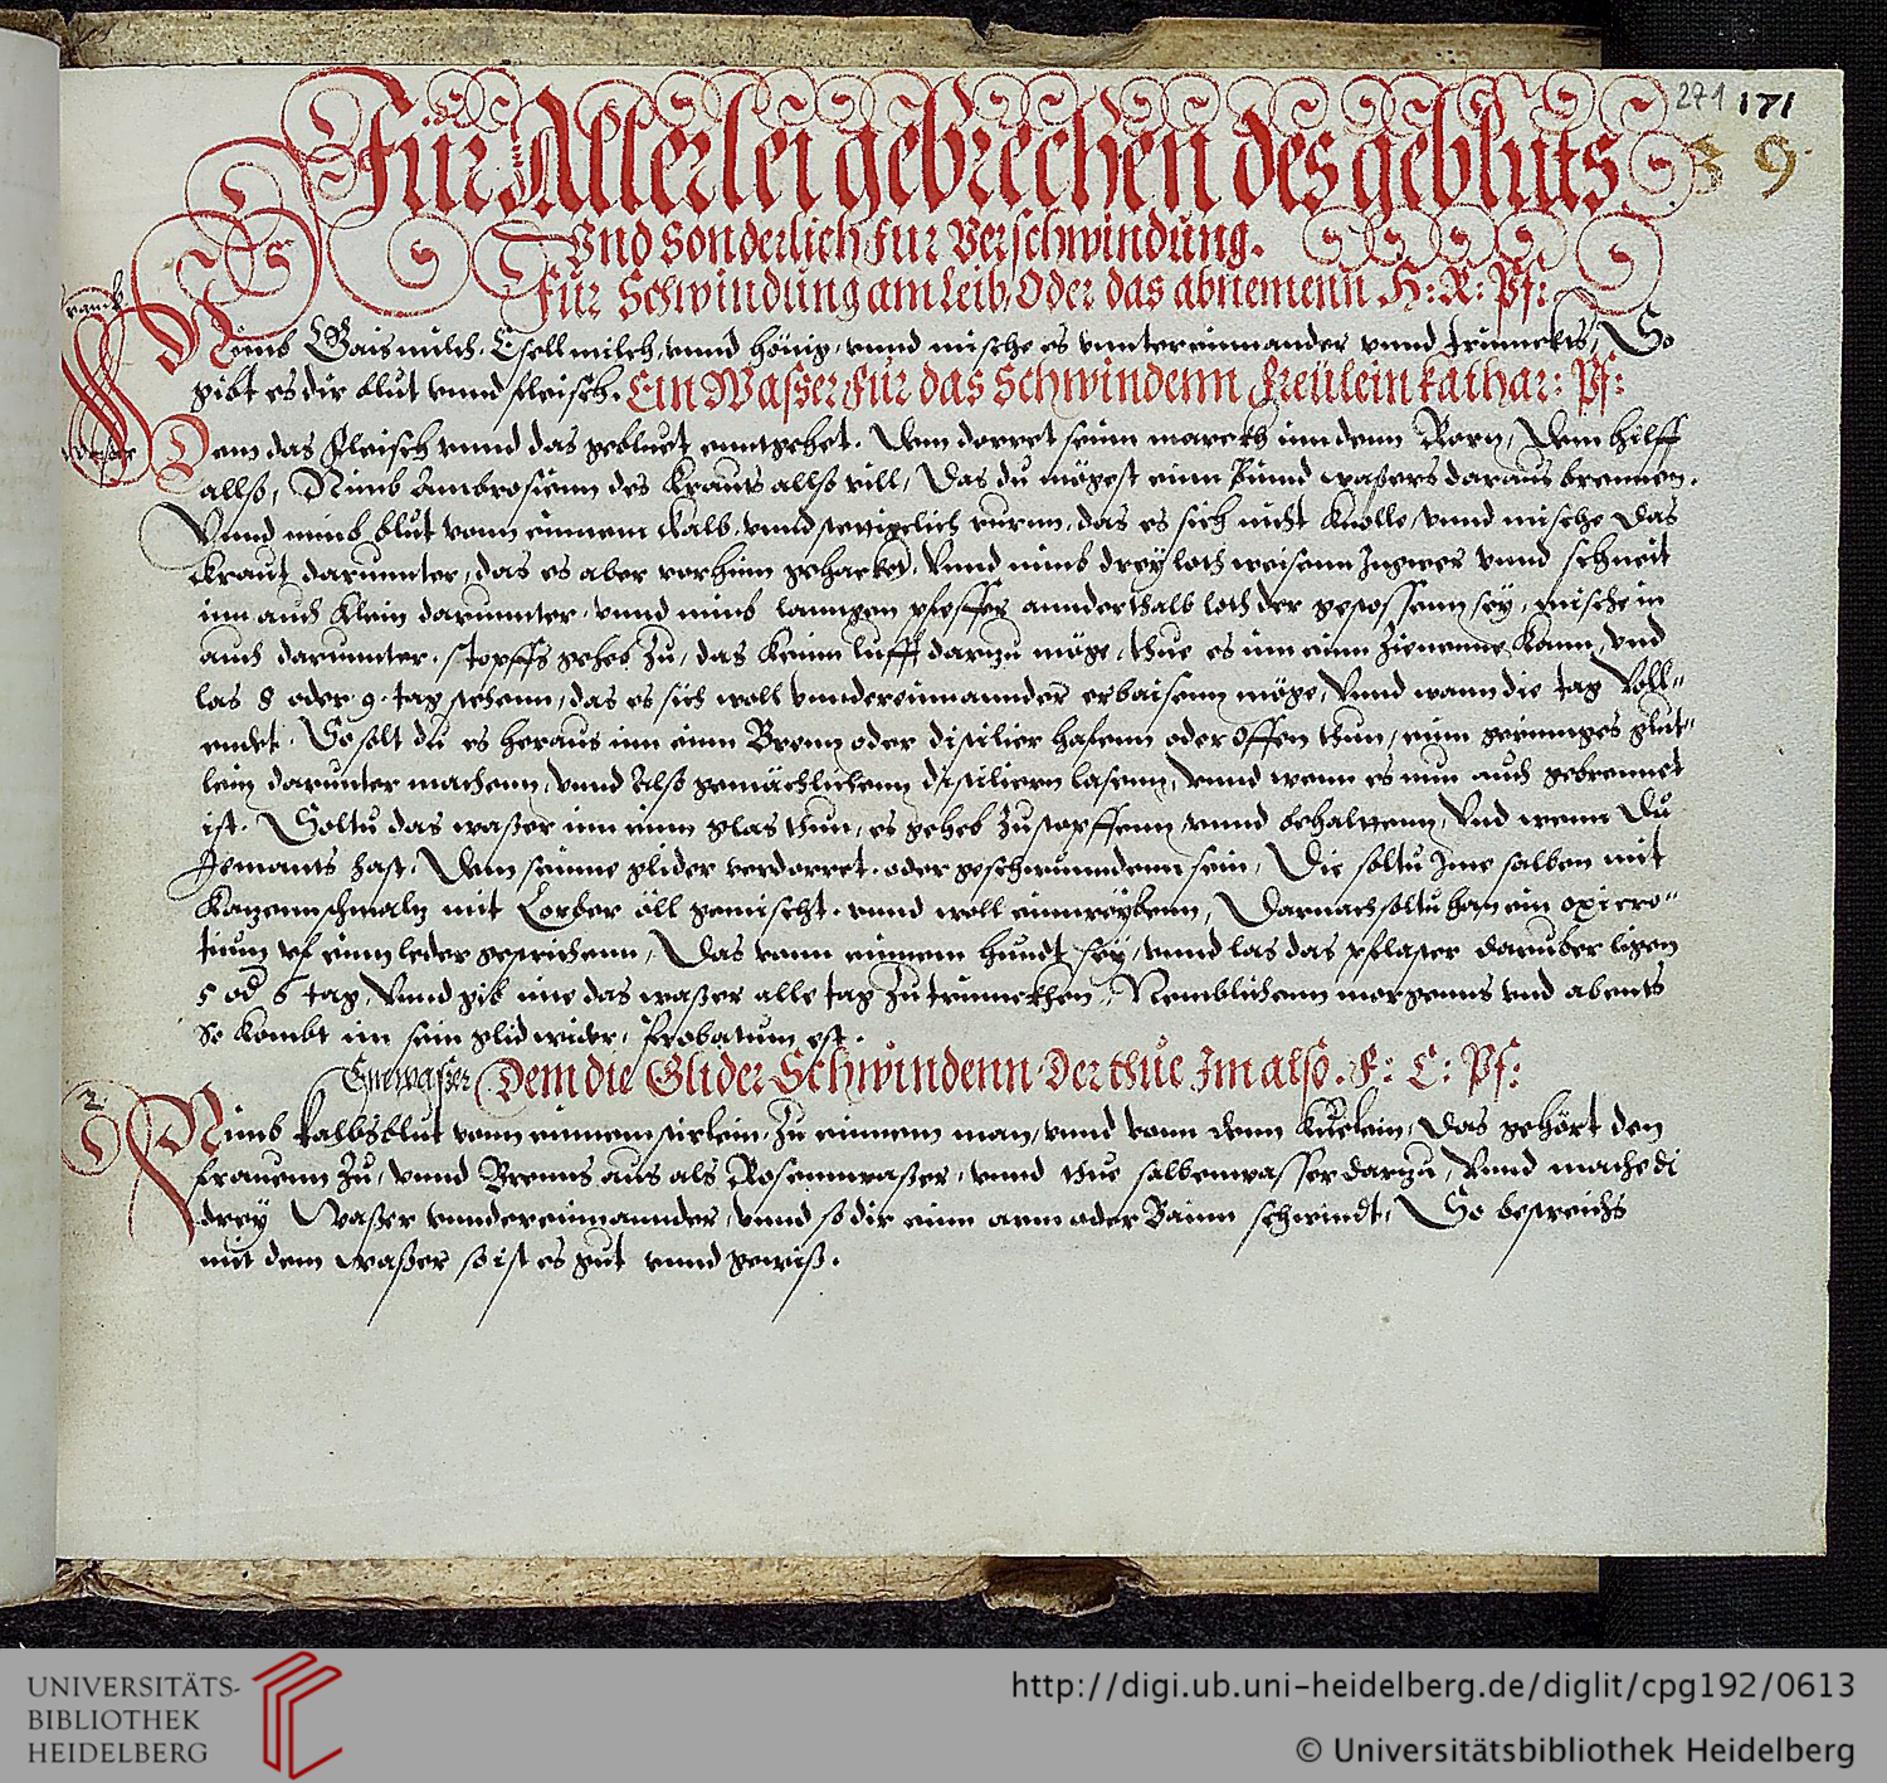 271 171
39
Für Allerlei gebrechen des gebluts
Vnd sonderlich fur Verschwindung.
Für Schwindung am leib, Oder das abnemenn H: R: Pf:
Nemb Gaismilch, Esellmilch, vnnd hönig, vnnd mische es vnntereinnander vnnd trinnckts, So
gibt es dir blut vnnd fleisch. Ein Waßer für das Schwindenn Freülein kathar: Pf:
Dem das fleisch vnnd das gebluet enntgehet. Dem dorret seinn marckh inn denn Rorn, Dem hilff
allso, Nimb Ambrosienn des krauts allso vill, Das du mögest einn kannd waßers daraus brennen.
Vnnd nimb blut vonn einnem Kalb, vnnd stettigelich rurnn, das es sich nicht knolle, vnnd mische das
kraut darunnter, das es aber vorhinn gehacket, Vnnd nimb drey loth weisenn Ingwer vnnd schneit
inn auch klein darunnter, vnnd nimb lanngen pfeffer annderthalb loth der gestossenn sey, mische in
auch darunnter, stopffs geheb zu, das keinn lufft darzu möge, thue es inn einn Zienenne kann, vnd
las 8 oder 9 tag stehenn, das es sich woll vnndereinnannder erbaisenn möge, Vnnd wann die tag Voll"
endet. So solt du es heraus inn einn Brenn oder distilier hafenn oder offen thun, einn geringes glut"
lein darunter machenn, vnnd also gemächlichenn distiliern lasenn, vnnd wenn es nun auch gebrennet
ist. Soltu das waßer inn einn glas thun, es geheb zustopffenn, vnnd behalttenn, Vnd wenn du
Jemants hast, Dem seinne glider verdorret, oder geschwunndenn sein, Die soltu Ime salben mit
Kazennschmalz mit Lorber öll gemischt, vnnd woll einnreybenn, Darnach soltu han ein oxicro"
tium vf einn leder gestrichenn, Das vonn einnem hundt sey, vnnd las das pflaster daruber ligen
5 od 6 tag, Vnnd gib ime das waßer alle tag zu trinnckhen, Nemblichenn morgenns vnd abents
So kombt im sein glid wider, Probatum est.
Ein waßer Dem die Glider Schwindenn, Der thue Im also. F: C: Pf:
2.
Nimb kalbsblut vonn einnem stierlein, Zu einnem man, vnnd vonn denn kuelein, Das gehört den
frauenn zu, vnnd Brenns aus als Rosennwaßer, vnnd thue salbenwasser darzu, Vnnd mache di
drey Waßer vnndereinnannder, vnnd so dir einn arm oder Bainn schwindt, So bestreichs
mit dem waßer so ist es gut vnnd gewiß.
UNIVERSITÄTS-
BIBLIOTHEK
HEIDELBERG
http://digi.ub.uni-heidelberg.de/diglit/cpg192/0613
© Universitätsbibliothek Heidelberg